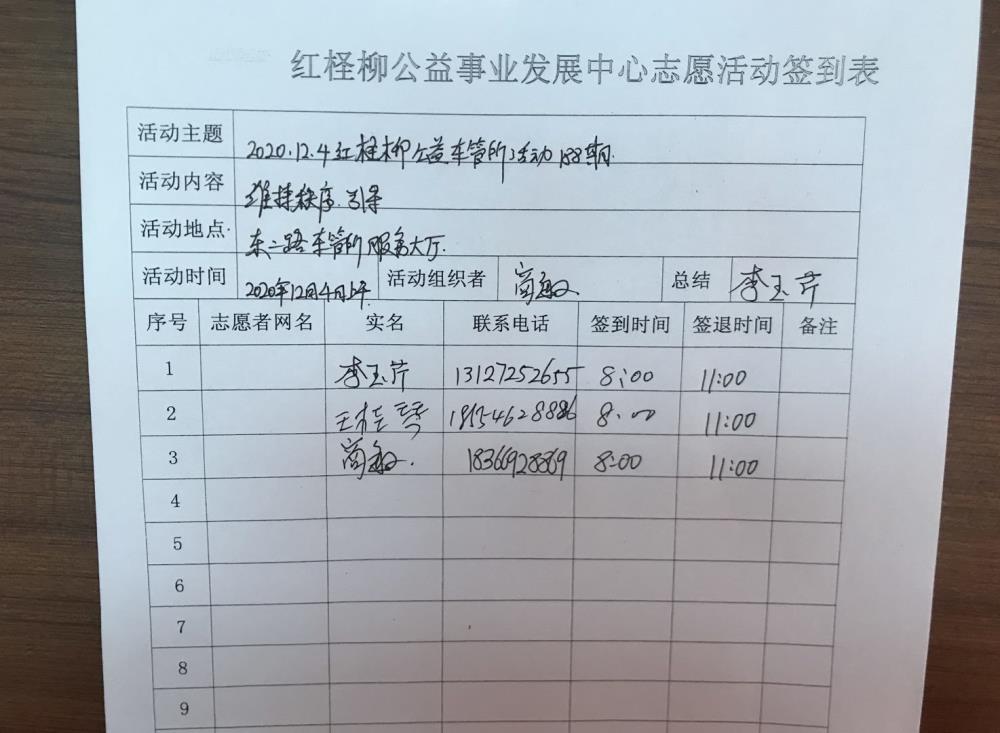 红柽柳公益事业发展中心志愿活动签到表
活动主题 2020.12.4红柽柳公益车管所活动188辆
活动内容 维持秩序.引导
活动地点 东二路车管所服务大厅.
活动时间 2020年12月4日上午 活动组织者 商敏 总结 李玉芹
序号 志愿者网名 实名 联系电话 签到时间 签退时间 备注
1 李玉芹 13127252655 8:00 11:00
2 王桂琴 8:00 11:00
3 商敏. 18366928869 8:00 11:00
4
5
6
7
8
9